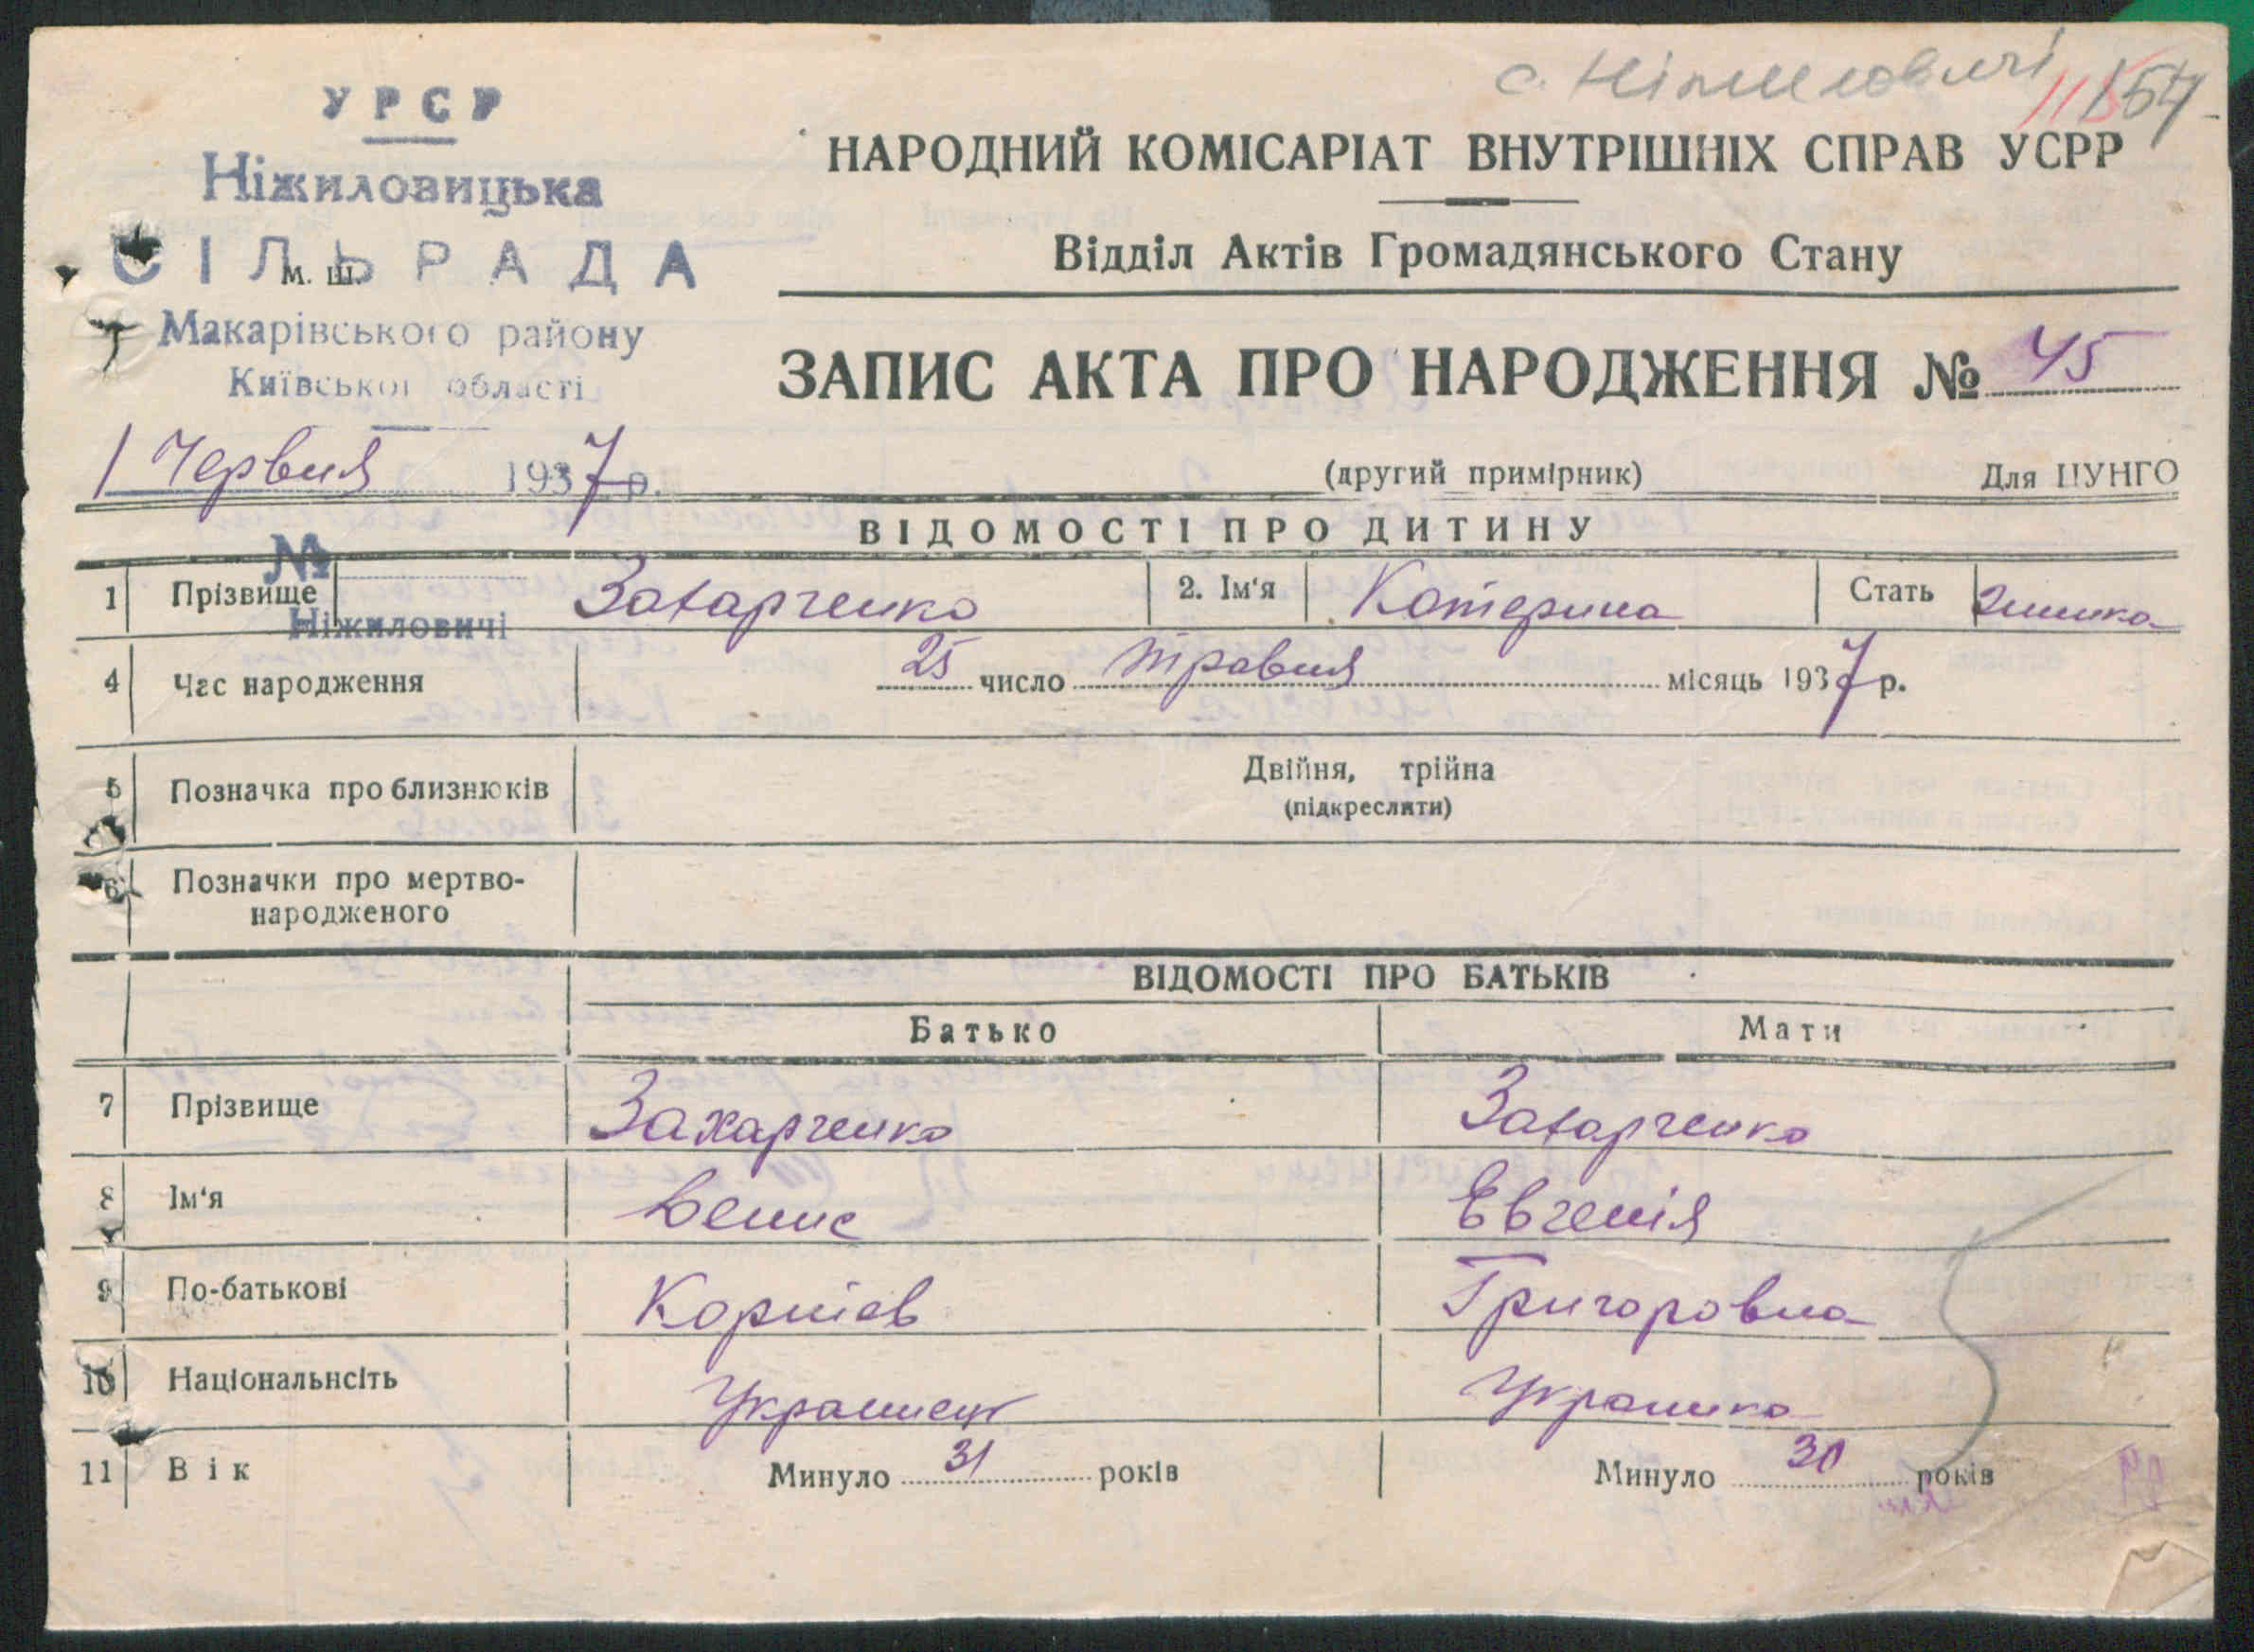 с. Ніжиловичі
115 154
УРСР
Ніжиловицька
СІЛЬРАДА
м. ш.
Макарівського району
Київської області
1 Червня 1937 р.
№
Ніжиловичі
НАРОДНИЙ КОМІСАРІАТ ВНУТРІШНІХ СПРАВ УСРР
Відділ Актів Громадянського Стану
ЗАПИС АКТА ПРО НАРОДЖЕННЯ № 45
(другий примірник) Для ЦУНГО
ВІДОМОСТІ ПРО ДИТИНУ
1 Прізвище Захарченко 2. Ім‘я Катерина Стать
4 Час народження 25 число травня місяць 1937 р.
5 Позначка про близнюків Двійня, трійна
(підкреслити)
6 Позначки про мертво-
народженого
ВІДОМОСТІ ПРО БАТЬКІВ
Батько Мати
7 Прізвище Захарченко Захарченко
8 Ім‘я Денис Евгенія
9 По-батькові Корнієв Григоровна
10 Національнсіть Украинец Украинка
11 Вік Минуло 31 років Минуло 30 років